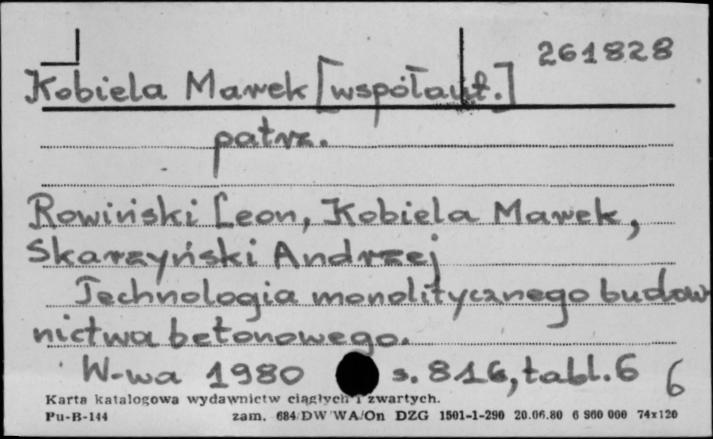 261828
Kobiela Marek [współaut.]
patrz.
Rowiński Leon, Kobiela Marek,
Skarzyński Andrzej
Technologia monolitycznego budow
nictwa betonowego.
W-wa 1980 s. 816, tabl. 6
6
Karta katalogowa wydawnictw ciągłych i zwartych.
Pu-B-144 zam. 684/DW WA/On DZG 1501-1-290 20.06.80 6 960 000 74x120